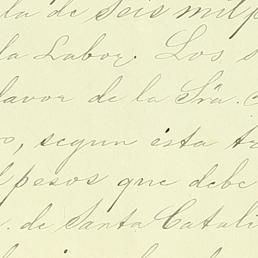 la de seis mil p
la Labor. Los s
favor de la Sra.
o, segun ésta tr
l pesos que debe
. de Santa Catali